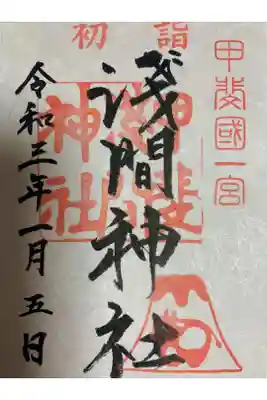 初詣
甲斐國一宮
淺間神社
令和三年一月五日